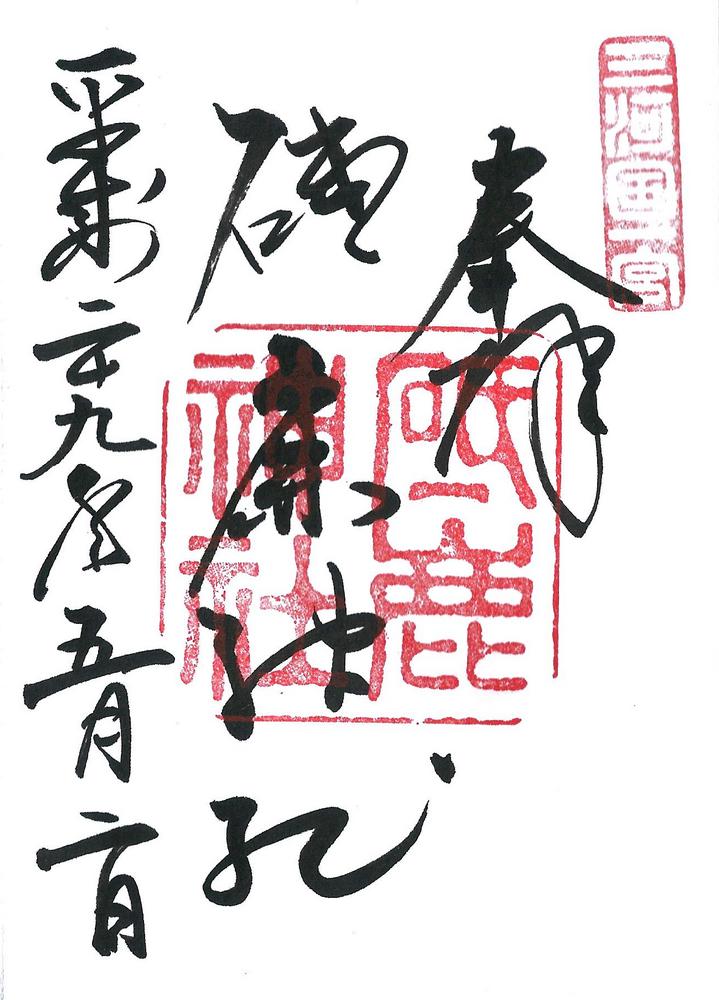 三河國一宮
奉拝
砥鹿神社
砥鹿神社
平成二十九年五月二日